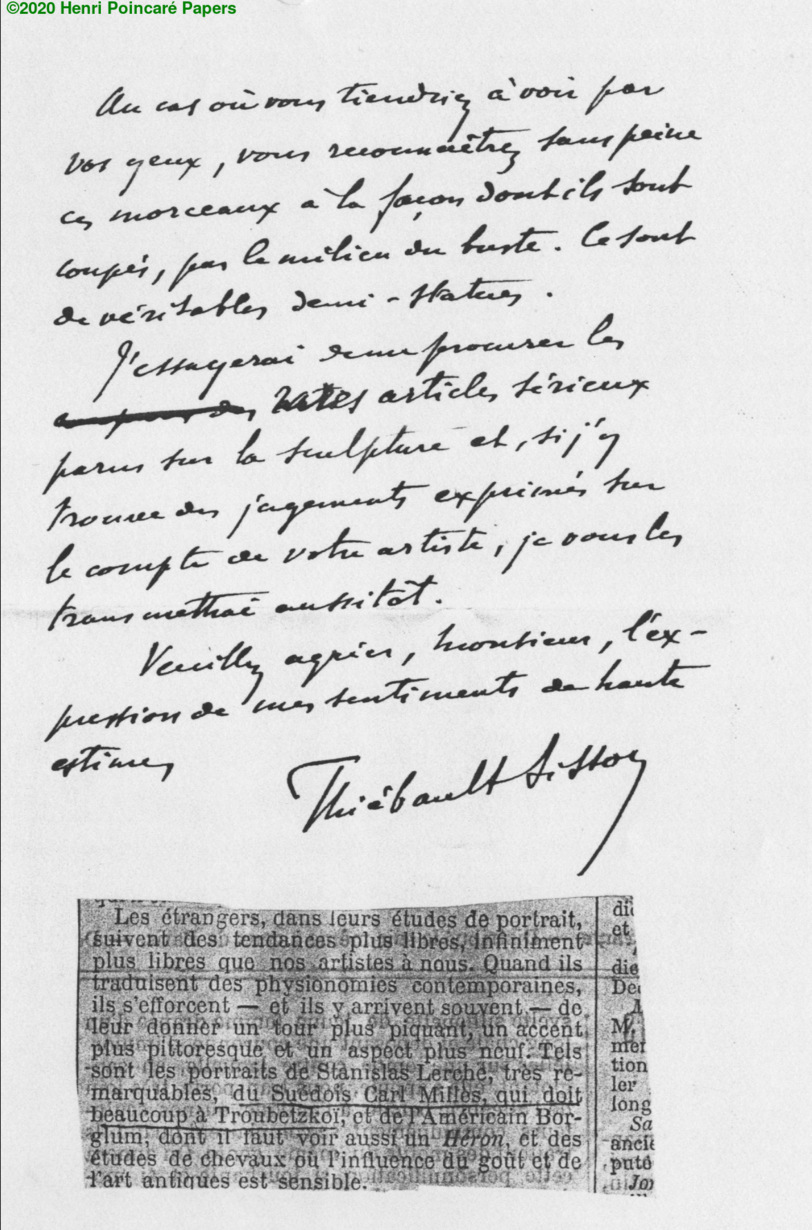 ©2020 Henri Poincaré Papers
Au cas où vous tiendriez à voir par
vos yeux, vous reconnaîtrez sans peine
ces morceaux à la façon dont ils sont
coupés, par le milieu du buste. Ce sont
de véritables demi-statues.
J'essayerai de me procurer les
rares articles sérieux
parus sur la sculpture et, si j'y
trouve des jugements exprimés sur
le compte de votre artiste, je vous les
transmettrai aussitôt.
Veuillez agréer, monsieur, l'ex-
pression de mes sentiments de haute
estime,
Thiébault Sisson
Les étrangers, dans leurs études de portrait,
suivent des tendances plus libres, infiniment
plus libres que nos artistes à nous. Quand ils
traduisent des physionomies contemporaines,
ils s'efforcent — et ils y arrivent souvent — de
leur donner un tour plus piquant, un accent
plus pittoresque et un aspect plus neuf. Tels
sont les portraits de Stanislas Lerche, très re-
marquables, du Suédois Carl Milles, qui doit
beaucoup à Troubetzkoï, et de l'Américain Bor-
glum, dont il faut voir aussi un Héron, et des
études de chevaux où l'influence du goût et de
l'art antiques est sensible.
di
et
die
De
M.
met
tion
ler
long
Sa
ancie
puté
Jo